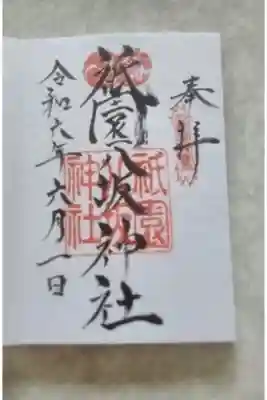 奉拝
祇園八坂神社
令和六年六月一日
祇園
神社